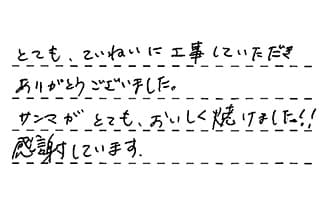 とても、ていねいに工事していただき
ありがとうございました。
サンマがとても、おいしく焼けました!!
感謝しています.